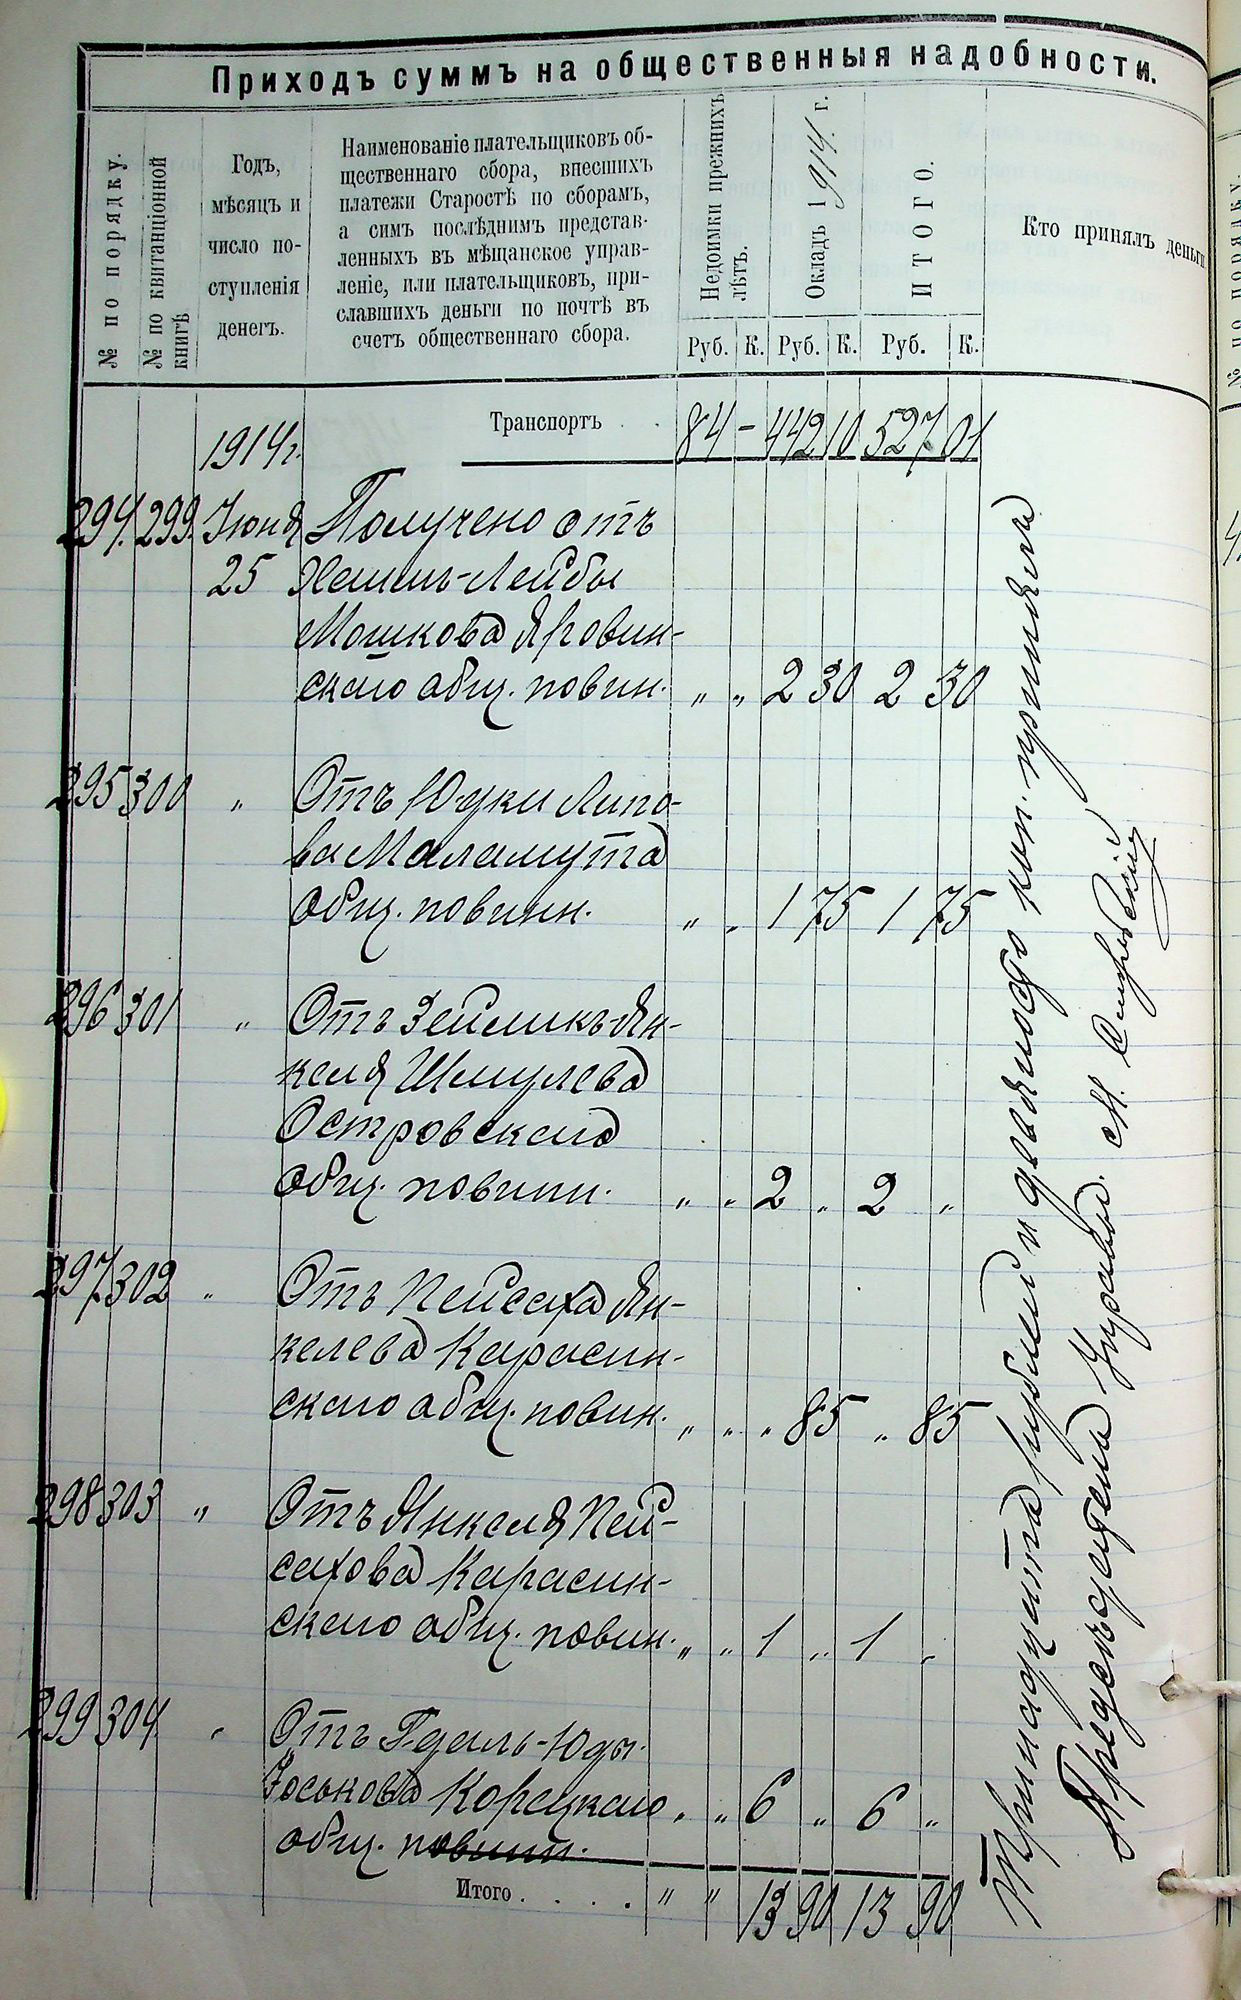 Приходъ суммъ на общественныя надобности.
№ по порядку.
№ по квитанціонной книгѣ
Годъ,
мѣсяцъ и
число по-
ступленія
денегъ.
Наименованіе плательщиковъ об-
щественнаго сбора, внесшихъ
платежи Старостѣ по сборамъ,
а симъ послѣднимъ представ-
ленныхъ въ мѣщанское управ-
леніе, или плательщиковъ, при-
славшихъ деньги по почтѣ въ
счетъ общественнаго сбора.
Недоимки прежнихъ лѣтъ.
Окладъ 1914 г.
ИТОГО.
Кто принялъ деньги.
Руб. К. Руб. К. Руб. К.
Транспортъ . . 84 - 442 10 527 01
1914 г.
294. 299. Іюня Получено отъ
25 -Лейбы
Мошкова Яровин-
скаго общ. повин. „ „ 2 30 2 30
295 300 „ Отъ Юдки Липо-
ва Маламута
общ. повинн. „ „ 1 75 1 75
296 301 „ Отъ Зейликъ Ян-
келя Шмулева
Островскаго
общ. повинн. „ „ 2 „ 2 „
297 302 „ Отъ Пейсаха Ян-
келева Карасин-
скаго общ. повин. „ „ „ 85 „ 85
298 303 „ Отъ Янкеля Пей-
сахова Карасин-
скаго общ. повин. „ „ 1 „ 1 „
299 304 „ Отъ Гдаль-Юды
Іоськова Корецкаго „ „ 6 „ 6 „
общ. повинн.
Итого . . . . „ „ 13 90 13 90
Тринадцать рублей и девяносто коп. принялъ
Предсѣдатель Управы М.